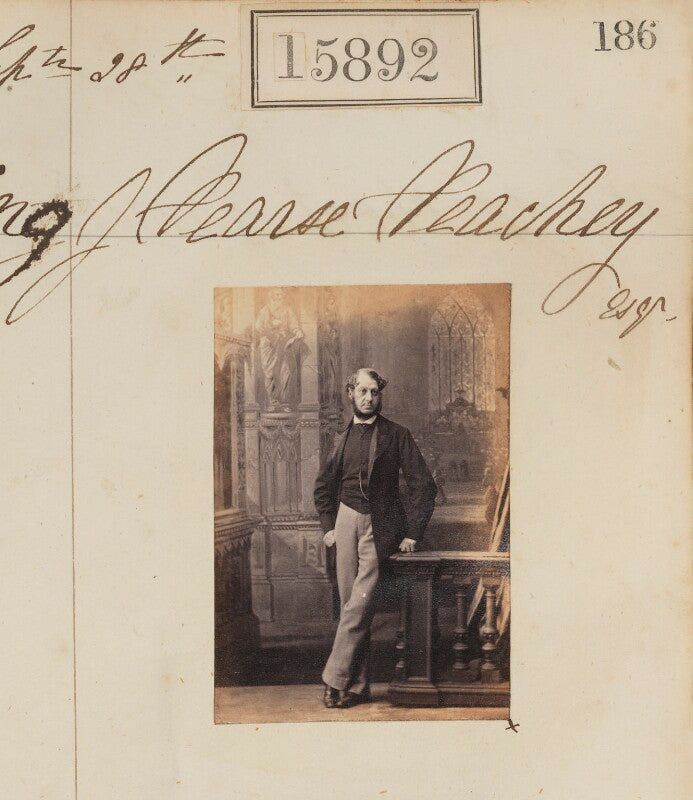 Septr 28th
15892
186
ing J Pearse Peachey
Esqr.
x